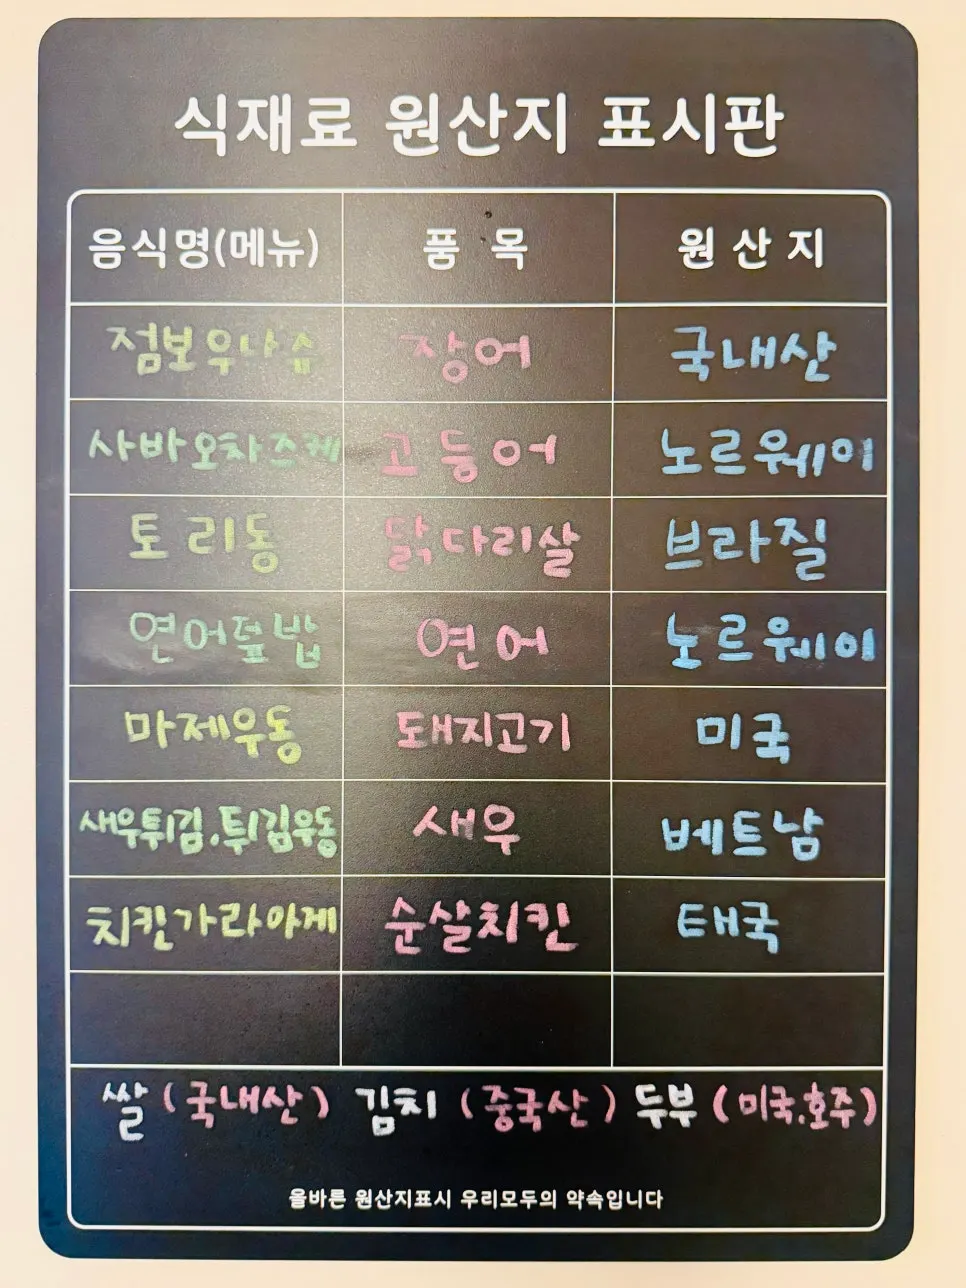 식재료 원산지 표시판
음식명(메뉴) 품 목 원 산 지
점보우나쥬 장어 국내산
사바오차즈케 고등어 노르웨이
토리동 닭다리살 브라질
연어덮밥 연어 노르웨이
마제우동 돼지고기 미국
새우튀김.튀김우동 새우 베트남
치킨가라아게 순살치킨 태국
쌀 (국내산) 김치 (중국산) 두부 (미국.호주)
올바른 원산지표시 우리모두의 약속입니다